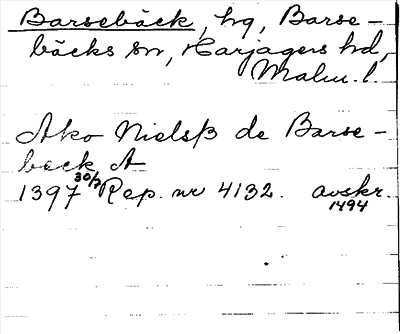 Barsebäck, hg, Barse-
bäcks sn, Harjagers hd,
Malm. l.
Ako Nielsß de Barse-
beck A
1397 30/7 Rep. nr 4132. avskr.
1494